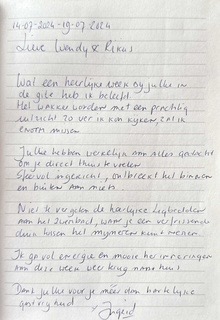 14-07-2024 - 19-07-2024
Lieve Wendy & Rikus
Wat een heerlijke week bij jullie in
de gîte heb ik beleefd
Het wakker worden met een prachtig
uitzicht zo ver ik kon kijken, zal ik
enorm missen
Jullie hebben werkelijk aan alles gedacht
om je direct thuis te voelen
Sfeervol ingericht, ontbreekt het binnen
en buiten aan niets.
Niet te vergeten de heerlijke ligbedden
aan het zwembad, waar je een verfrissende
duik tussen het mijmeren kunt nemen.
Ik ga vol energie en mooie herinneringen
aan deze week weer terug naar huis
Dank jullie voor je méér dan hartelijke
gastvrijheid
Ingrid